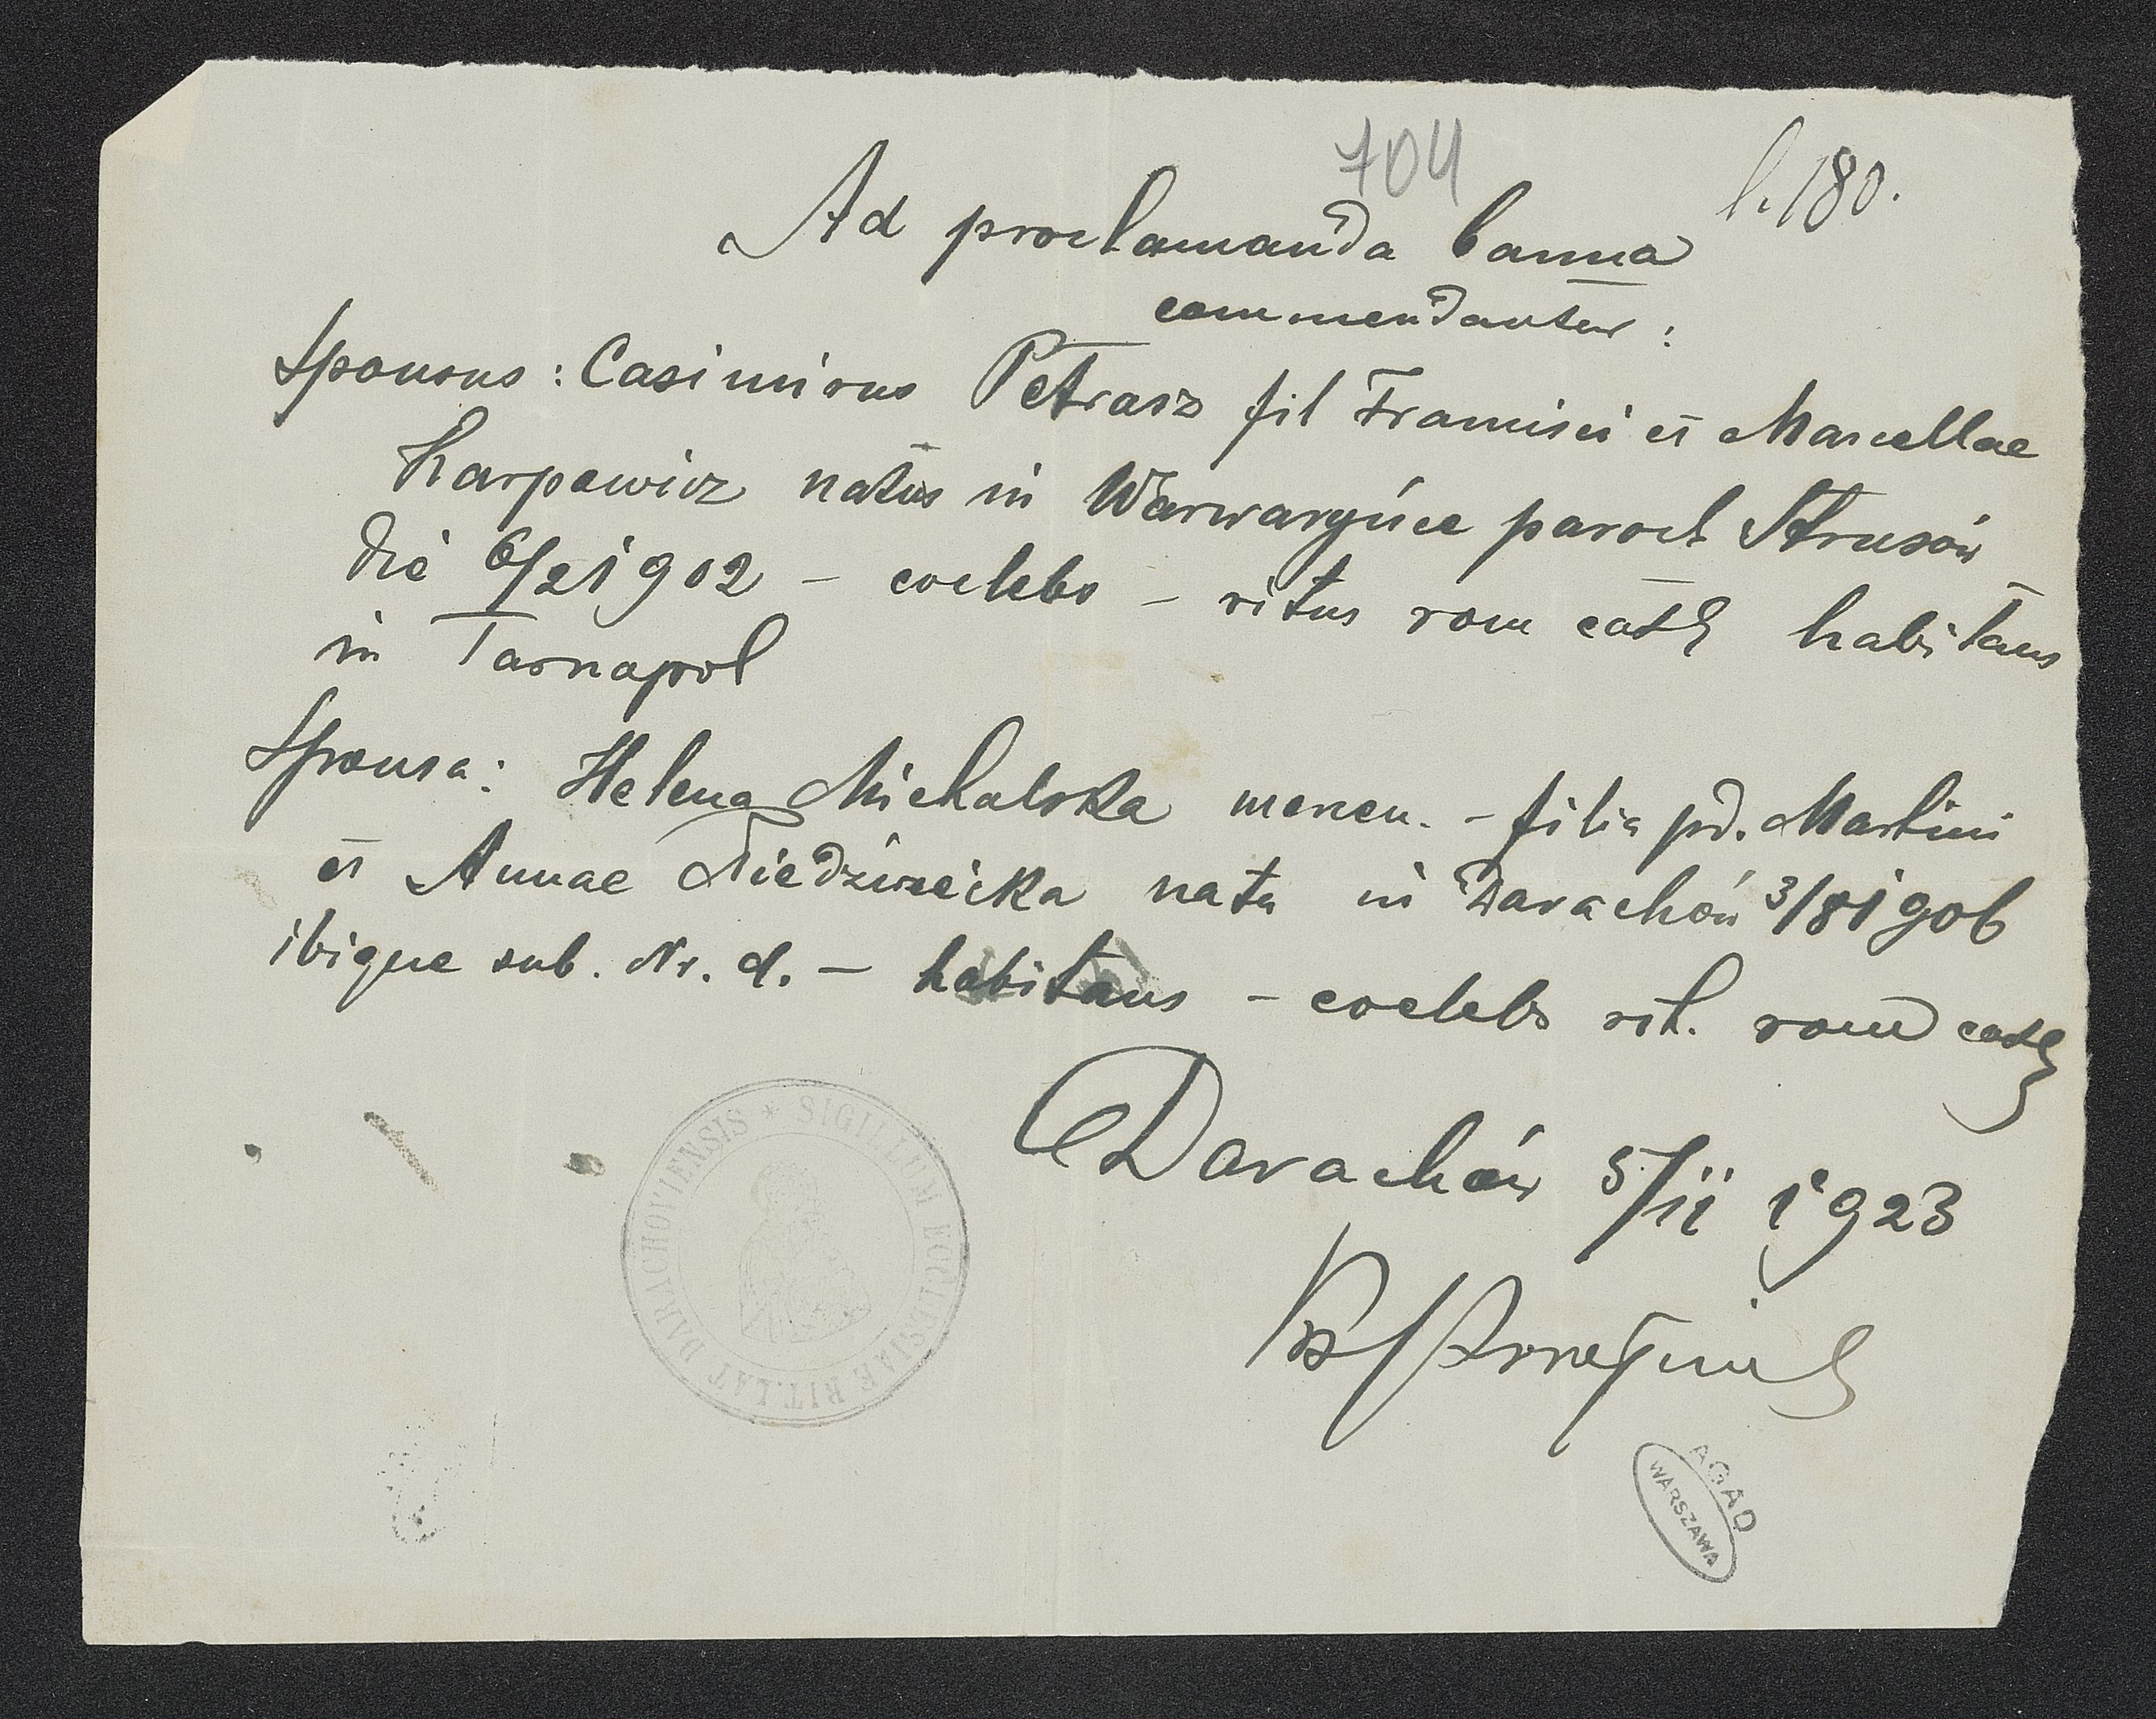 704
l. 180.
Ad proclamanda banna
commendantur :
Sponsus : Casimirus Petrasz fil Francisci et Marcellae
Karpowicz natus in Warwaryńce paroch Strusów
die 6/2 1902 – coelebs – ritus rom cath habitans
in Tarnopol
Sponsa : Helena Michalska – filia pd. Martini
et Annae Niedźwiecka nata in Darachów 3/8 1906
ibique sub. Nr. d. – habitans – coelebs rit. rom cath
Darachów 5/11 1923
SIGILLUM ECCLESIAE RIT. LAT DARACHOVIENSIS *
AGAD
WARSZAWA